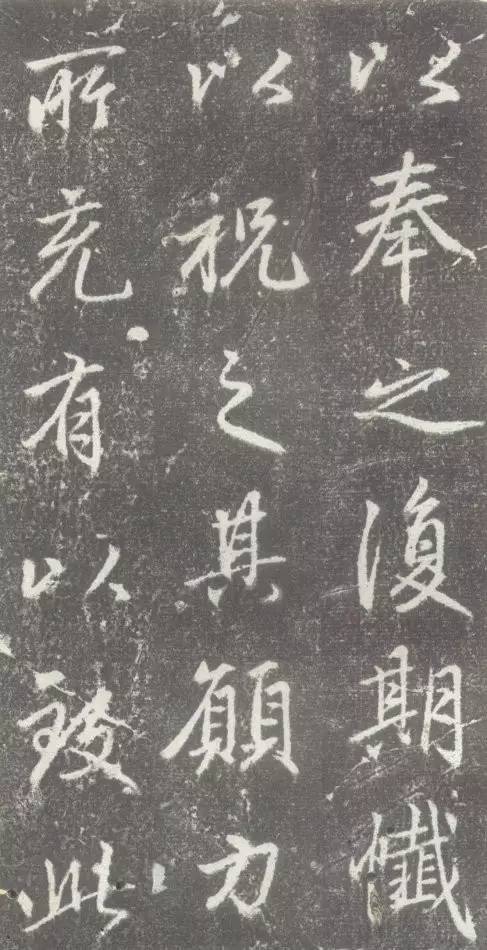 以奉之復期懴
以祝之其願力
所充有以致此